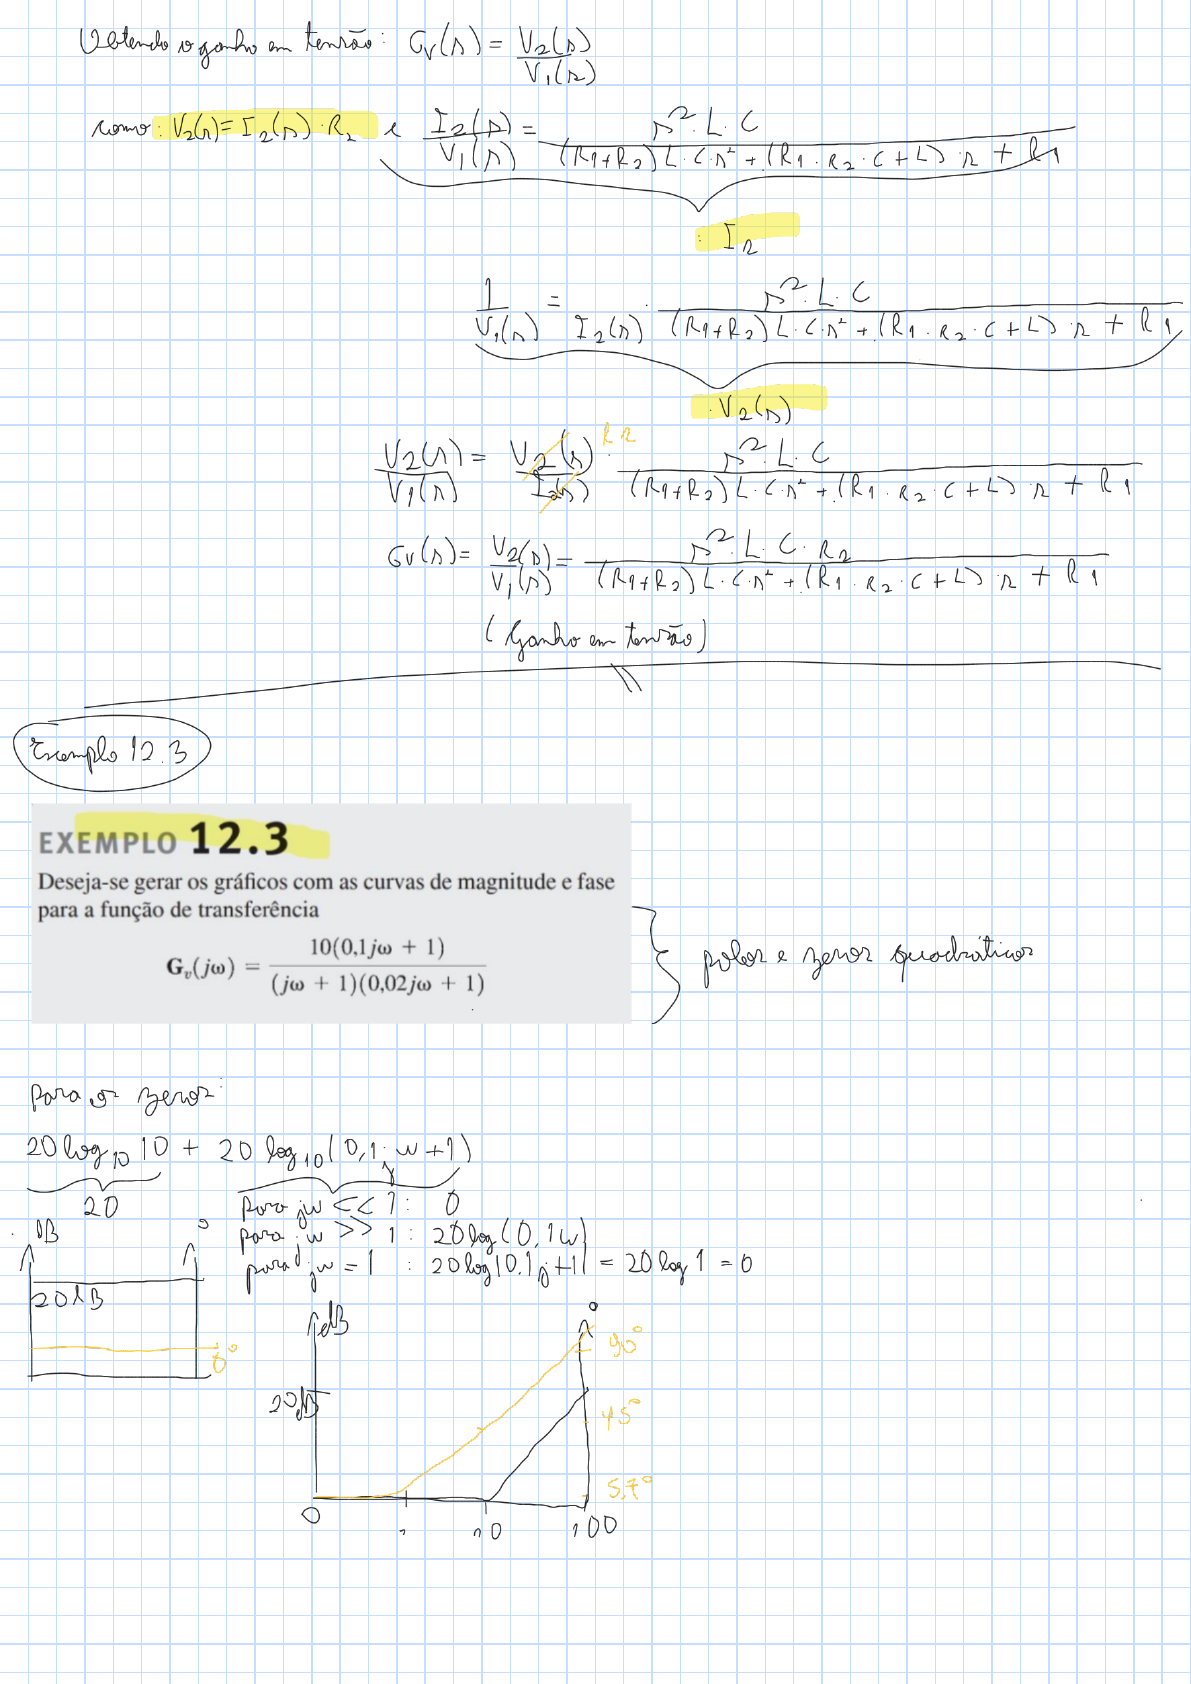 Obtendo o ganho em tensão: Gv(s) = V2(s) / V1(s)
como: V2(s) = I2(s) · R2 e I2(s) / V1(s) = s² · L · C / (R1+R2) L · C · s² + (R1 · R2 · C + L) · s + R1
: I2
1 / V1(s) = s² · L · C / I2(s) · (R1+R2) L · C · s² + (R1 · R2 · C + L) · s + R1
· V2(s)
R2
V2(s) / V1(s) = V2(s) / I2(s) · s² · L · C / (R1+R2) L · C · s² + (R1 · R2 · C + L) · s + R1
Gv(s) = V2(s) / V1(s) = s² · L · C · R2 / (R1+R2) L · C · s² + (R1 · R2 · C + L) · s + R1
(Ganho em tensão)
Exemplo 12.3
EXEMPLO 12.3
Deseja-se gerar os gráficos com as curvas de magnitude e fase
para a função de transferência
Gv(jω) = 10(0,1jω + 1) / (jω + 1)(0,02jω + 1)
polos e zeros quadráticos
para os zeros:
20 log10 10 + 20 log10(0,1jw+1)
20
para jw << 1 : 0
para jw >> 1 : 20 log(0,1w)
para jw = 1 : 20 log|0.1j+1| = 20 log 1 = 0
dB °
20dB
0°
dB °
90°
20dB
45°
5,7°
0 1 10 100